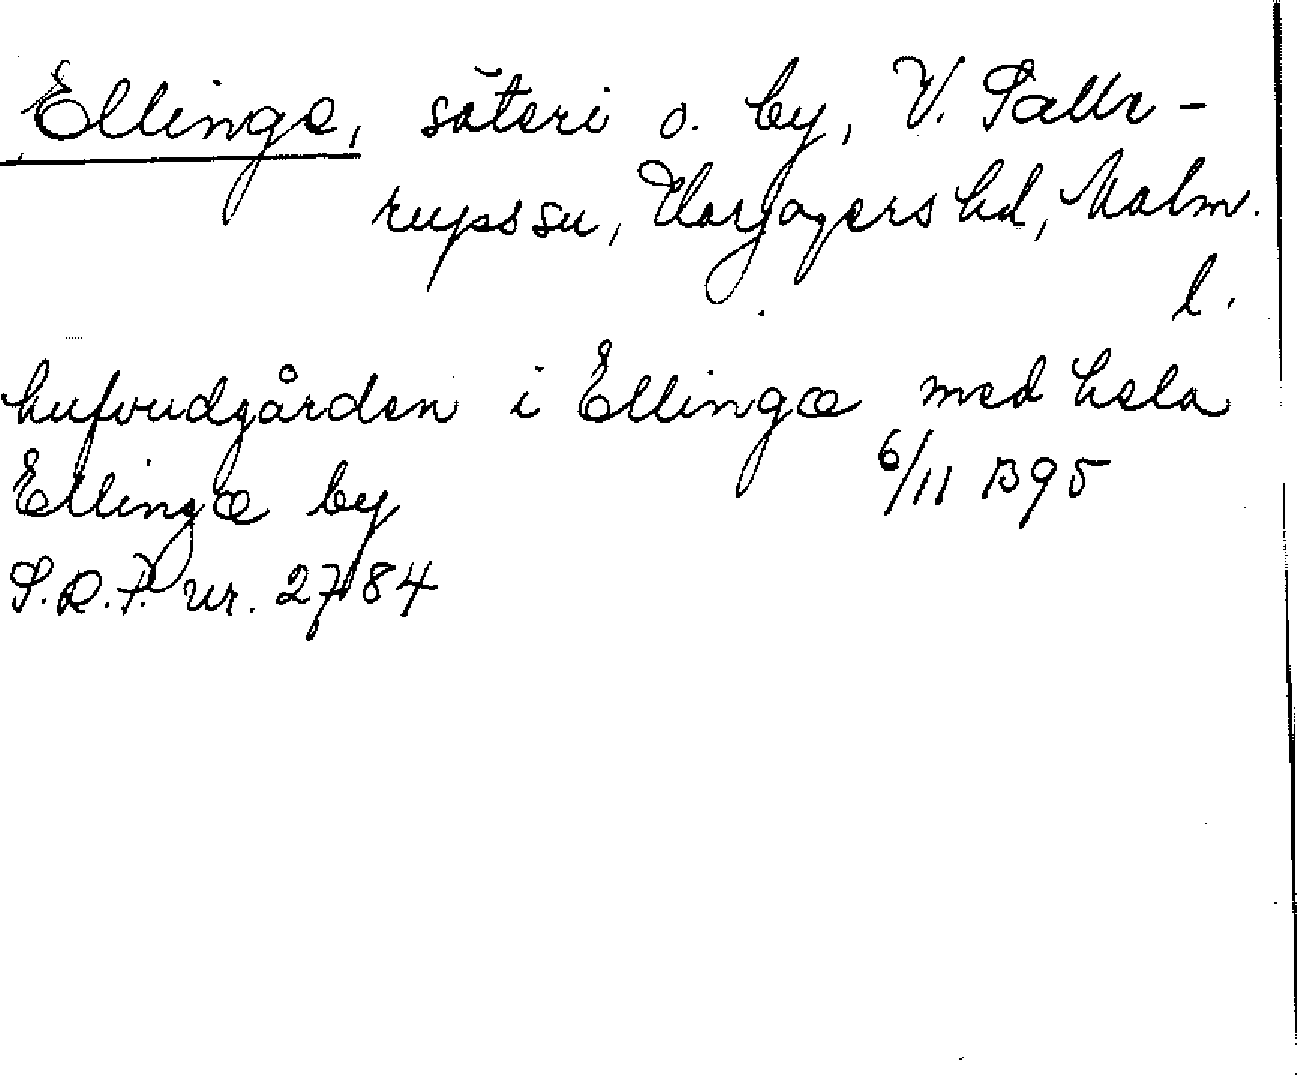 Ellinge, säteri o. by, V. Sallr-
rupssn, Harjagers hd, Malm.
l.
hufvudgården i Ellingæ med hela
Ellingæ by 6/11 1395
S.R.P. nr. 2784